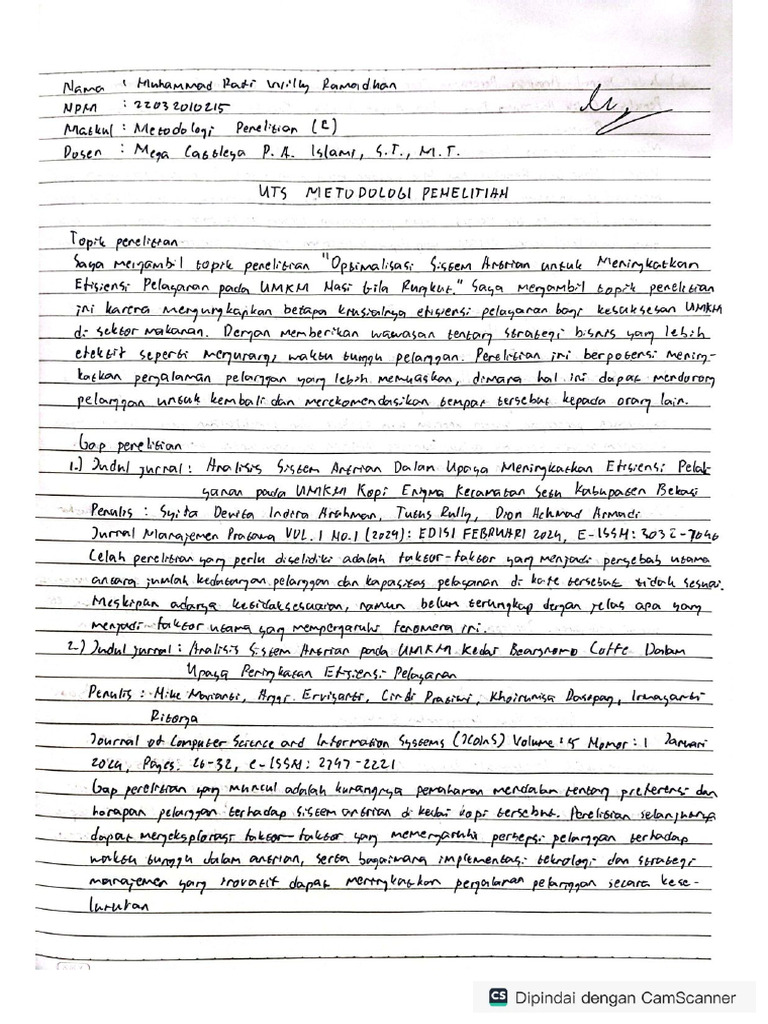 Nama : Muhammad Rafi Willy Ramadhan
NPM : 22032010215
Matkul : Metodologi Penelitian (C)
Dosen : Mega Cattleya P. A. Islami, S.T., M.T.
UTS METODOLOGI PENELITIAN
Topik penelitian
Saya mengambil topik penelitian "Optimalisasi Sistem Antrian untuk Meningkatkan
Efisiensi Pelayanan pada UMKM Nasi Gila Rungkut." Saya mengambil topik penelitian
ini karena mengungkapkan betapa krusialnya efisiensi pelayanan bagi kesuksesan UMKM
di sektor makanan. Dengan memberikan wawasan tentang strategi bisnis yang lebih
efektif seperti mengurangi waktu tunggu pelanggan. Penelitian ini berpotensi mening-
katkan pengalaman pelanggan yang lebih memuaskan, dimana hal ini dapat mendorong
pelanggan untuk kembali dan merekomendasikan tempat tersebut kepada orang lain.
Gap penelitian
1.) Judul jurnal : Analisis Sistem Antrian Dalam Upaya Meningkatkan Efisiensi Pela-
yanan pada UMKM Kopi Enigma Kecamatan Setu Kabupaten Bekasi
Penulis : Syifa Dewita Indira Arahman, Tutus Rully, Dion Achmad Armadi
Jurnal Manajemen Pratama VOL. 1 NO.1 (2024): EDISI FEBRUARI 2024, E-ISSN: 3032-7046
Celah penelitian yang perlu diselidiki adalah faktor-faktor yang menjadi penyebab utama
antara jumlah kedatangan pelanggan dan kapasitas pelayanan di kafe tersebut tidak sesuai.
Meskipun adanya ketidaksesuaian, namun belum terungkap dengan jelas apa yang
menjadi faktor utama yang mempengaruhi fenomena ini.
2.) Judul jurnal : Analisis Sistem Antrian pada UMKM Kedai Beargnomo Coffe Dalam
Upaya Peningkatan Efisiensi Pelayanan
Penulis : Mike Marianti, Anggi Ervisanti, Cindi Pratiwi, Khoirunisa Dasopang, Irmayanti
Ritonga
Journal of Computer Science and Information Systems (JCoInS) Volume : 5 Nomor : 1 Januari
2024, Pages. 26-32, e-ISSN: 2747-2221
Gap penelitian yang muncul adalah kurangnya pemahaman mendalam tentang preferensi dan
harapan pelanggan terhadap sistem antrian di kedai kopi tersebut. Penelitian selanjutnya
dapat mengeksplorasi faktor-faktor yang memengaruhi persepsi pelanggan terhadap
waktu tunggu dalam antrian, serta bagaimana implementasi teknologi dan strategi
manajemen yang inovatif dapat meningkatkan pengalaman pelanggan secara kese-
luruhan
CS Dipindai dengan CamScanner